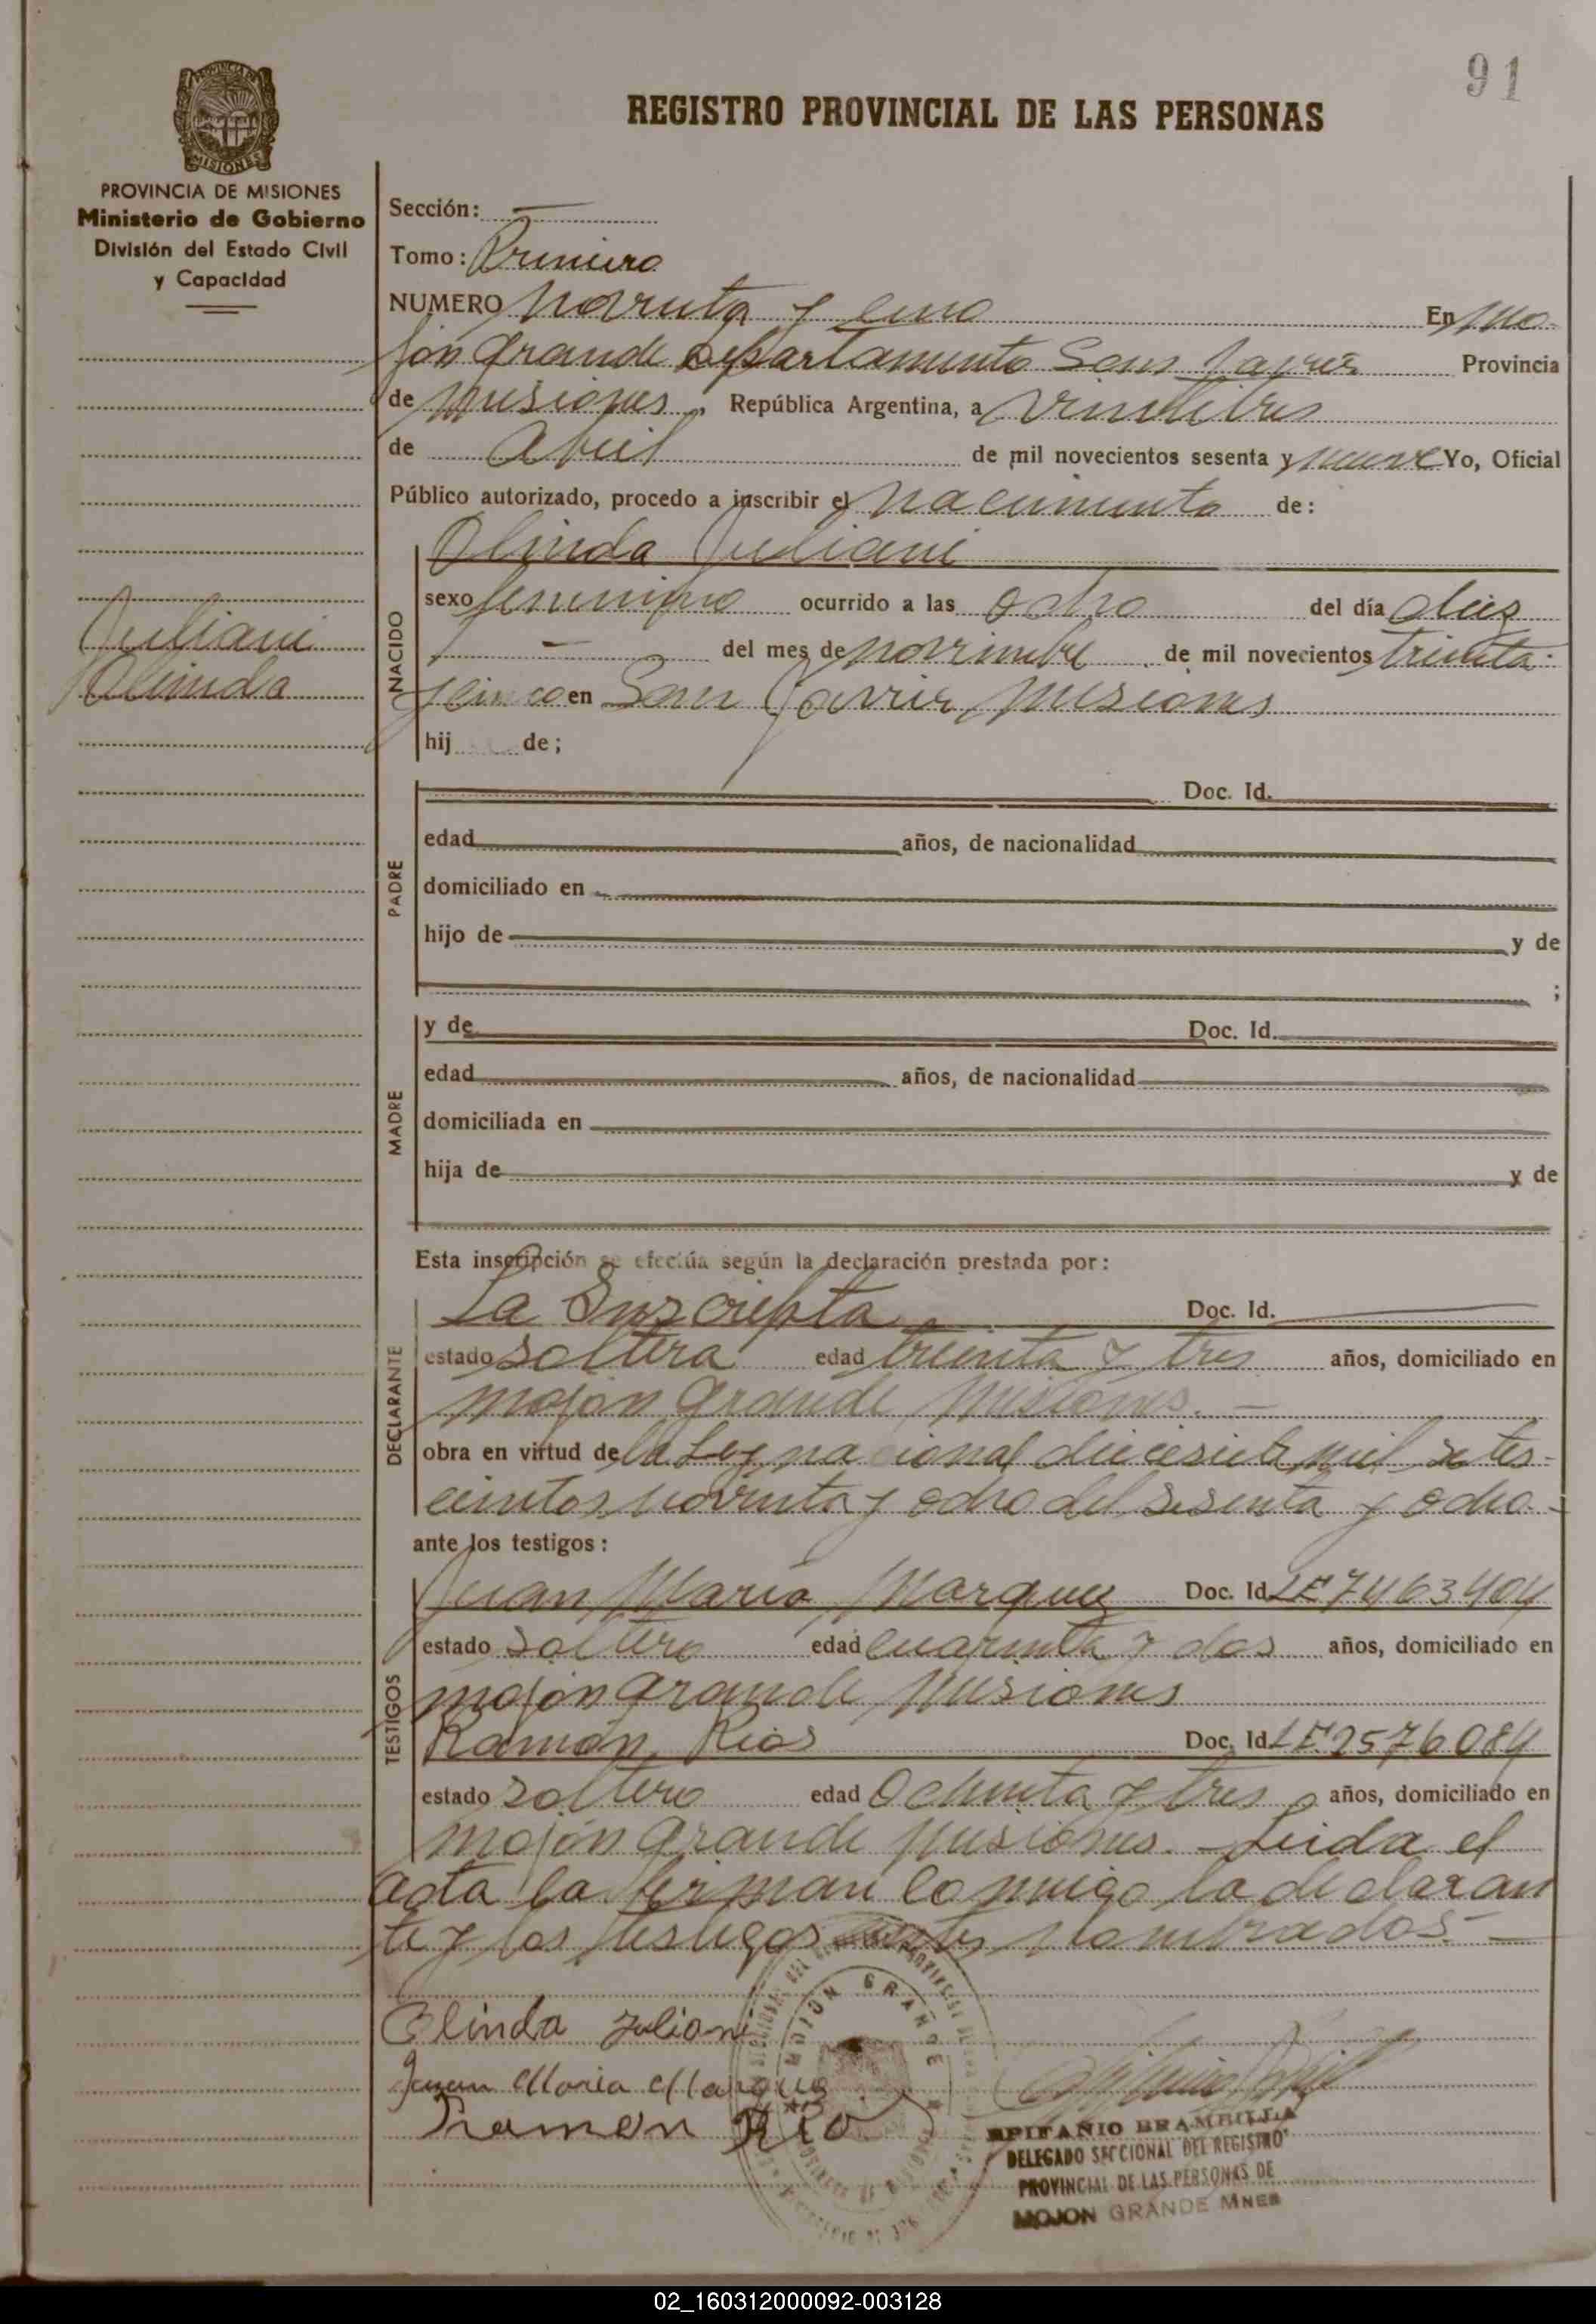 91
REGISTRO PROVINCIAL DE LAS PERSONAS
PROVINCIA DE MISIONES
MISIONES
PROVINCIA DE MISIONES
Ministerio de Gobierno
División del Estado Civil
y Capacidad
Juliani
Olinda
Sección: —
Tomo: Primero
NUMERO Noventa y uno En Mo-
jón Grande Departamento San Javier Provincia
de Misiones, República Argentina, a Veintitres
de Abril de mil novecientos sesenta y nueve Yo, Oficial
Público autorizado, procedo a inscribir el Nacimiento de:
NACIDO
Olinda Juliani
sexo femenino ocurrido a las ocho del día diez
— del mes de noviembre de mil novecientos treinta
y cinco en San Javier Misiones
hij de;
PADRE
Doc. Id.
edad años, de nacionalidad
domiciliado en
hijo de y de
;
MADRE
y de Doc. Id.
edad años, de nacionalidad
domiciliada en
hija de y de
Esta inscripción se efectúa según la declaración prestada por:
DECLARANTE
La Inscripta Doc. Id.
estado soltera edad treinta y tres años, domiciliado en
Mojón Grande Misiones. —
obra en virtud de la Ley nacional diecisiete mil setes-
cientos noventa y ocho del sesenta y ocho. -
ante los testigos:
TESTIGOS
Juan Maria Marquez Doc. Id. LE 7463404
estado soltero edad cuarenta y dos años, domiciliado en
Mojón Grande Misiones
Ramón Rios Doc. Id. LE 2576084
estado soltero edad Ochenta y tres años, domiciliado en
Mojón Grande Misiones. — Leida el
acta la firman conmigo la declaran
te y los testigos antes nombrados. —
Olinda Juliani
Juan Maria Marque
Ramon Rio
MOJON GRANDE
EPIFANIO BRAMBILLA
DELEGADO SECCIONAL DEL REGISTRO
PROVINCIAL DE LAS PERSONAS DE
MOJON GRANDE MNES
02_160312000092-003128